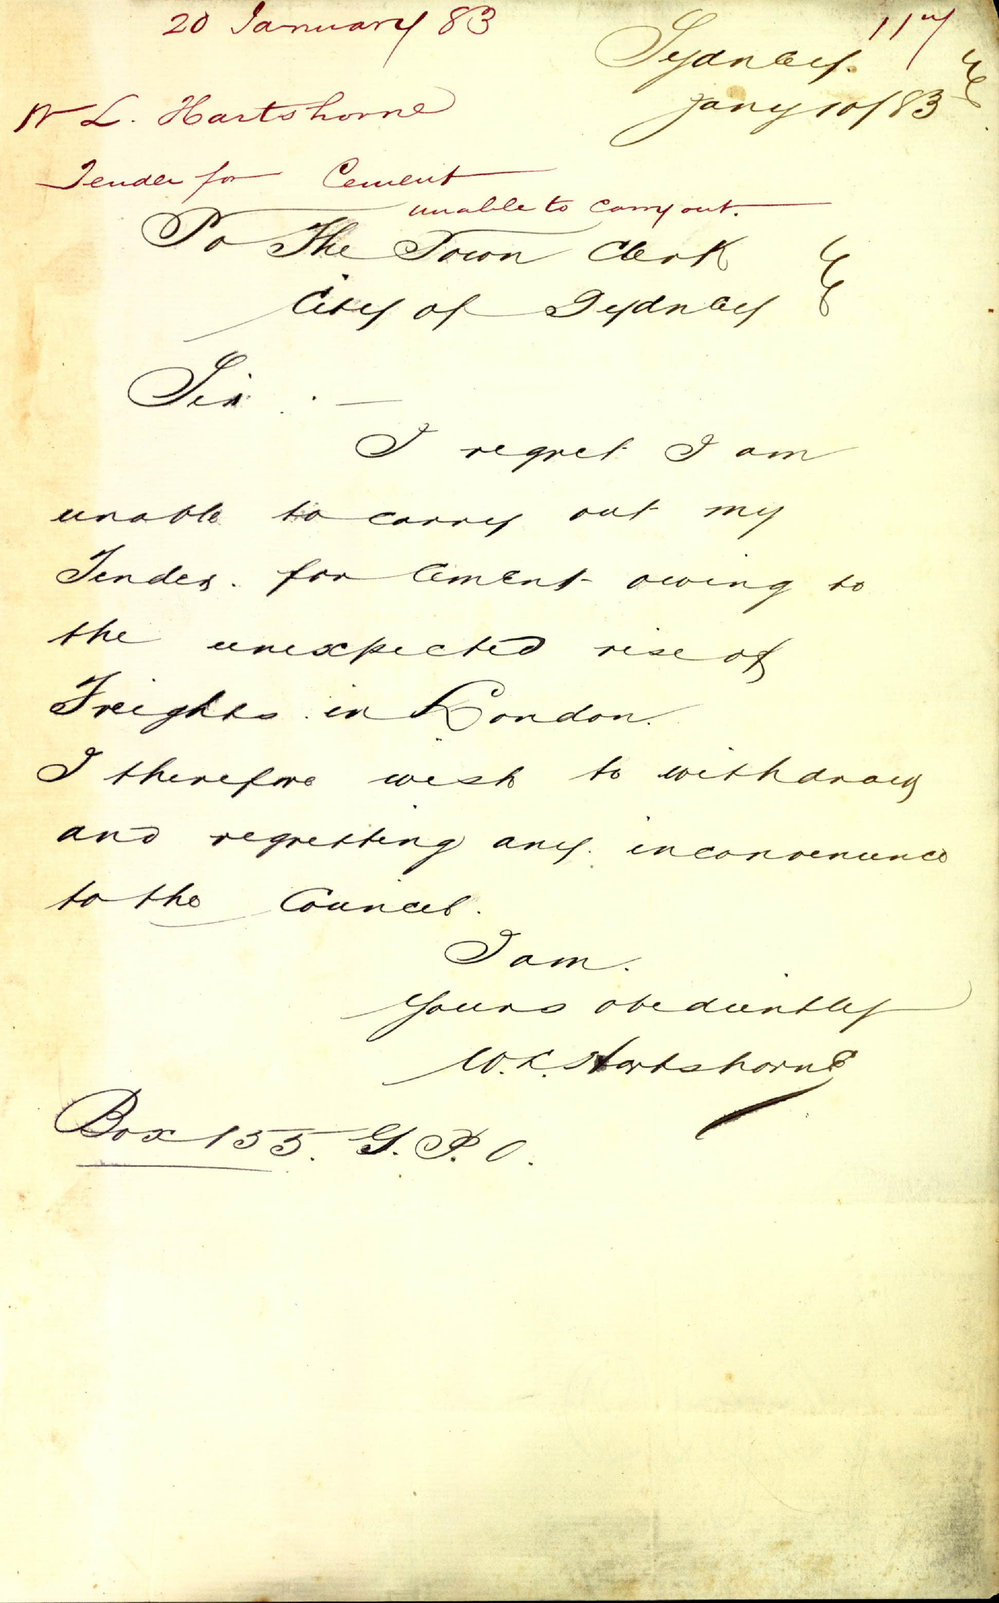 20 January 83
W L. Hartshorne
Tender for Cement
unable to carry out.
Sydney.
Jany 10/83
To The Town Clerk
City of Sydney
Sir. —
I regret I am
unable to carry out my
Tender. for Cement owing to
the unexpected rise of
Freights in London.
I therefore wish to withdraw
and regretting any inconvenience
to the Council.
I am.
Yours obediently
W. L. Hartshorne
Box 155. G. P. O.